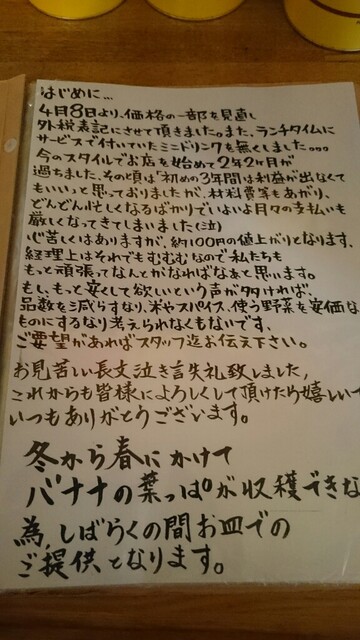 はじめに…
4月8日より、価格の一部を見直し
外税表記にさせて頂きました。また、ランチタイムに
サービスで付いていたミニドリンクを無くしました。。。
今のスタイルでお店を始めて2年2ヶ月が
過ちました、その頃は「初めの3年間は利益が出なくて
もいいっと思っておりましたが、材料費等もあがり、
どんどん忙しくなるばかりでいよいよ月々の支払いも
厳しくなってきてしまいました(泣)
心苦しくはありますが、約100円の値上がりとなります、
経理上はそれでもむむむなので私たちも
もっと頑張ってなんとかなればなぁと思います。
もし、もっと安くして欲しいという声が多ければ、
品数を減らすなり、米やスパイス、使う野菜を安価な
ものにするなり考えられなくもないです、
ご要望があればスタッフ迄お伝え下さい。
お見苦しい長文泣き言失礼致しました、
これからも皆様によろしくして頂けたら嬉しいで
いつもありがとうございます。
冬から春にかけて
バナナの葉っぱが収穫できな
為、しばらくの間お皿での
ご提供となります。